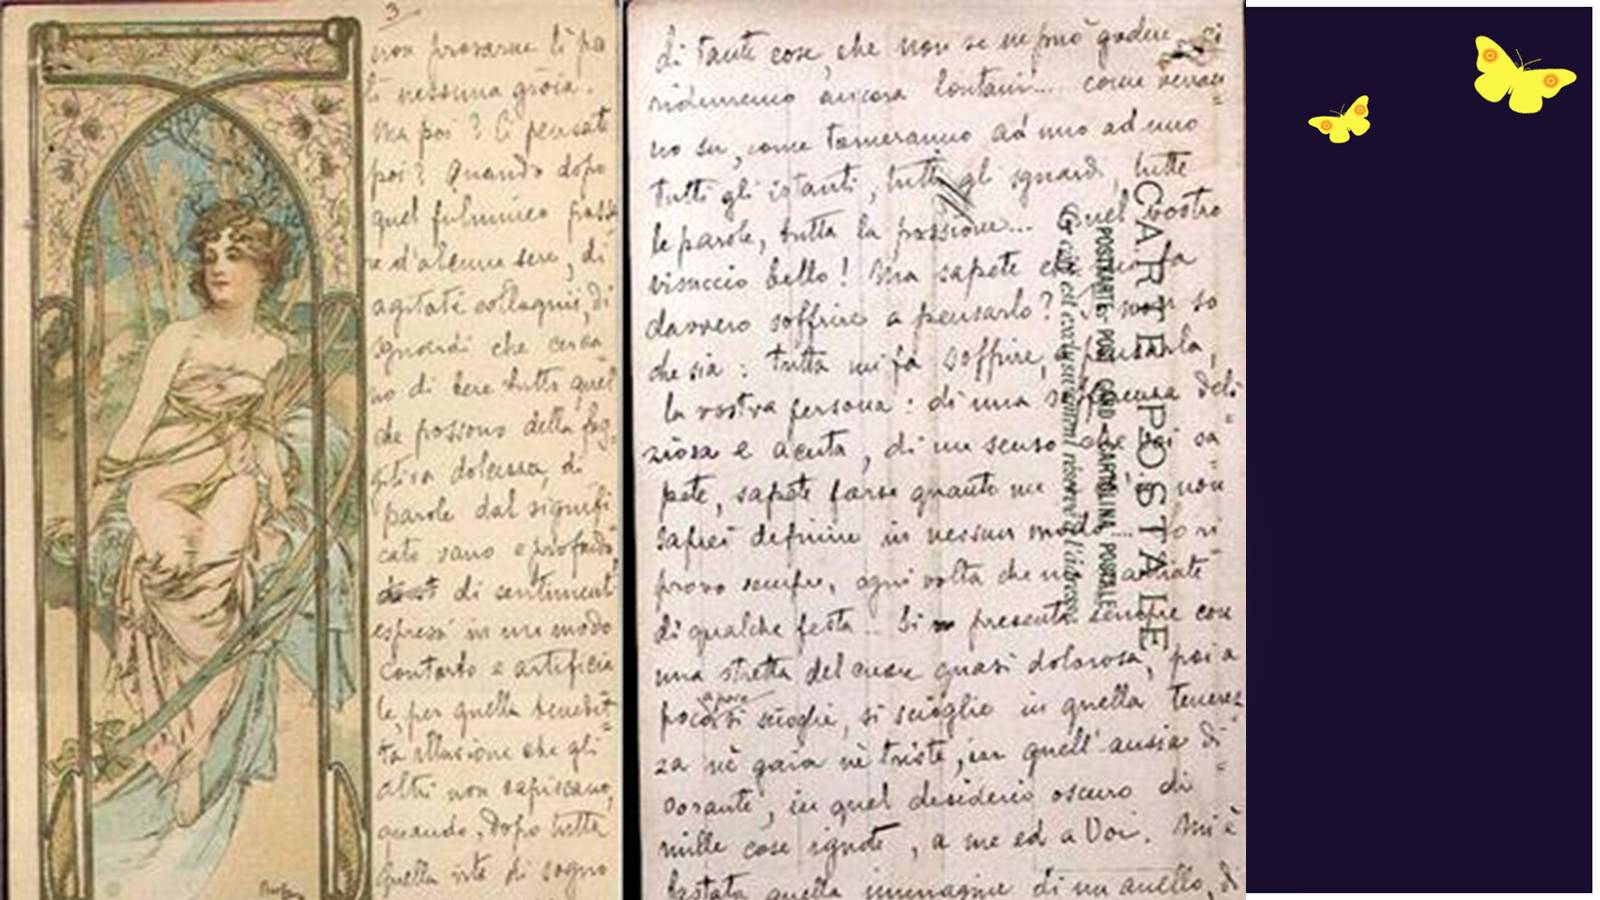 3
non provarne li pa
li nessuna gioia.
Ma poi? Ci pensate
poi? Quando dopo
quel fulmineo passa
re d'alcune sere, di
agitati colloquii, di
sguardi che cerca
no di bere tutto quel
che possono della fug
gitiva dolcezza, di
parole dal signifi
cato vano e profondo
di sentimenti
espressi in un modo
contorto e artificia
le, per quella benedet
ta illusione che gli
altri non capiscano,
quando, dopo tutta
quella vita di sogno
di tante cose, che non se ne può godere, si
rideremo ancora lontani... come verran
no su, come torneranno ad uno ad uno
tutti gli istanti, tutti gli sguardi, tutte
le parole, tutta la passione... Quel vostro
visuccio bello! Ma sapete che mi fa
davvero soffrire a pensarlo? Io non so
che sia: tutta mi fa soffrire, pensarla,
la vostra persona: di una sofferenza deli
ziosa e acuta, di un senso che voi sa
pete, sapete forse quanto me e non
saprei definire in nessun modo... Io ri
provo sempre, ogni volta che andate
di qualche festa... Si presenta sempre con
una stretta del cuore quasi dolorosa, poi a
poco a poco si scioglie, si scioglie in quella tenerez
za nè gaia nè triste, in quell'ansia di
vorante, in quel desiderio oscuro di
mille cose ignote, a me ed a Voi. Mi è
bastata quella immagine di un anello, di
CARTE POSTALE
POSTKARTE - POST CARD - CARTOLINA POSTALE
Ce côté est exclusivement réservé à l'adresse